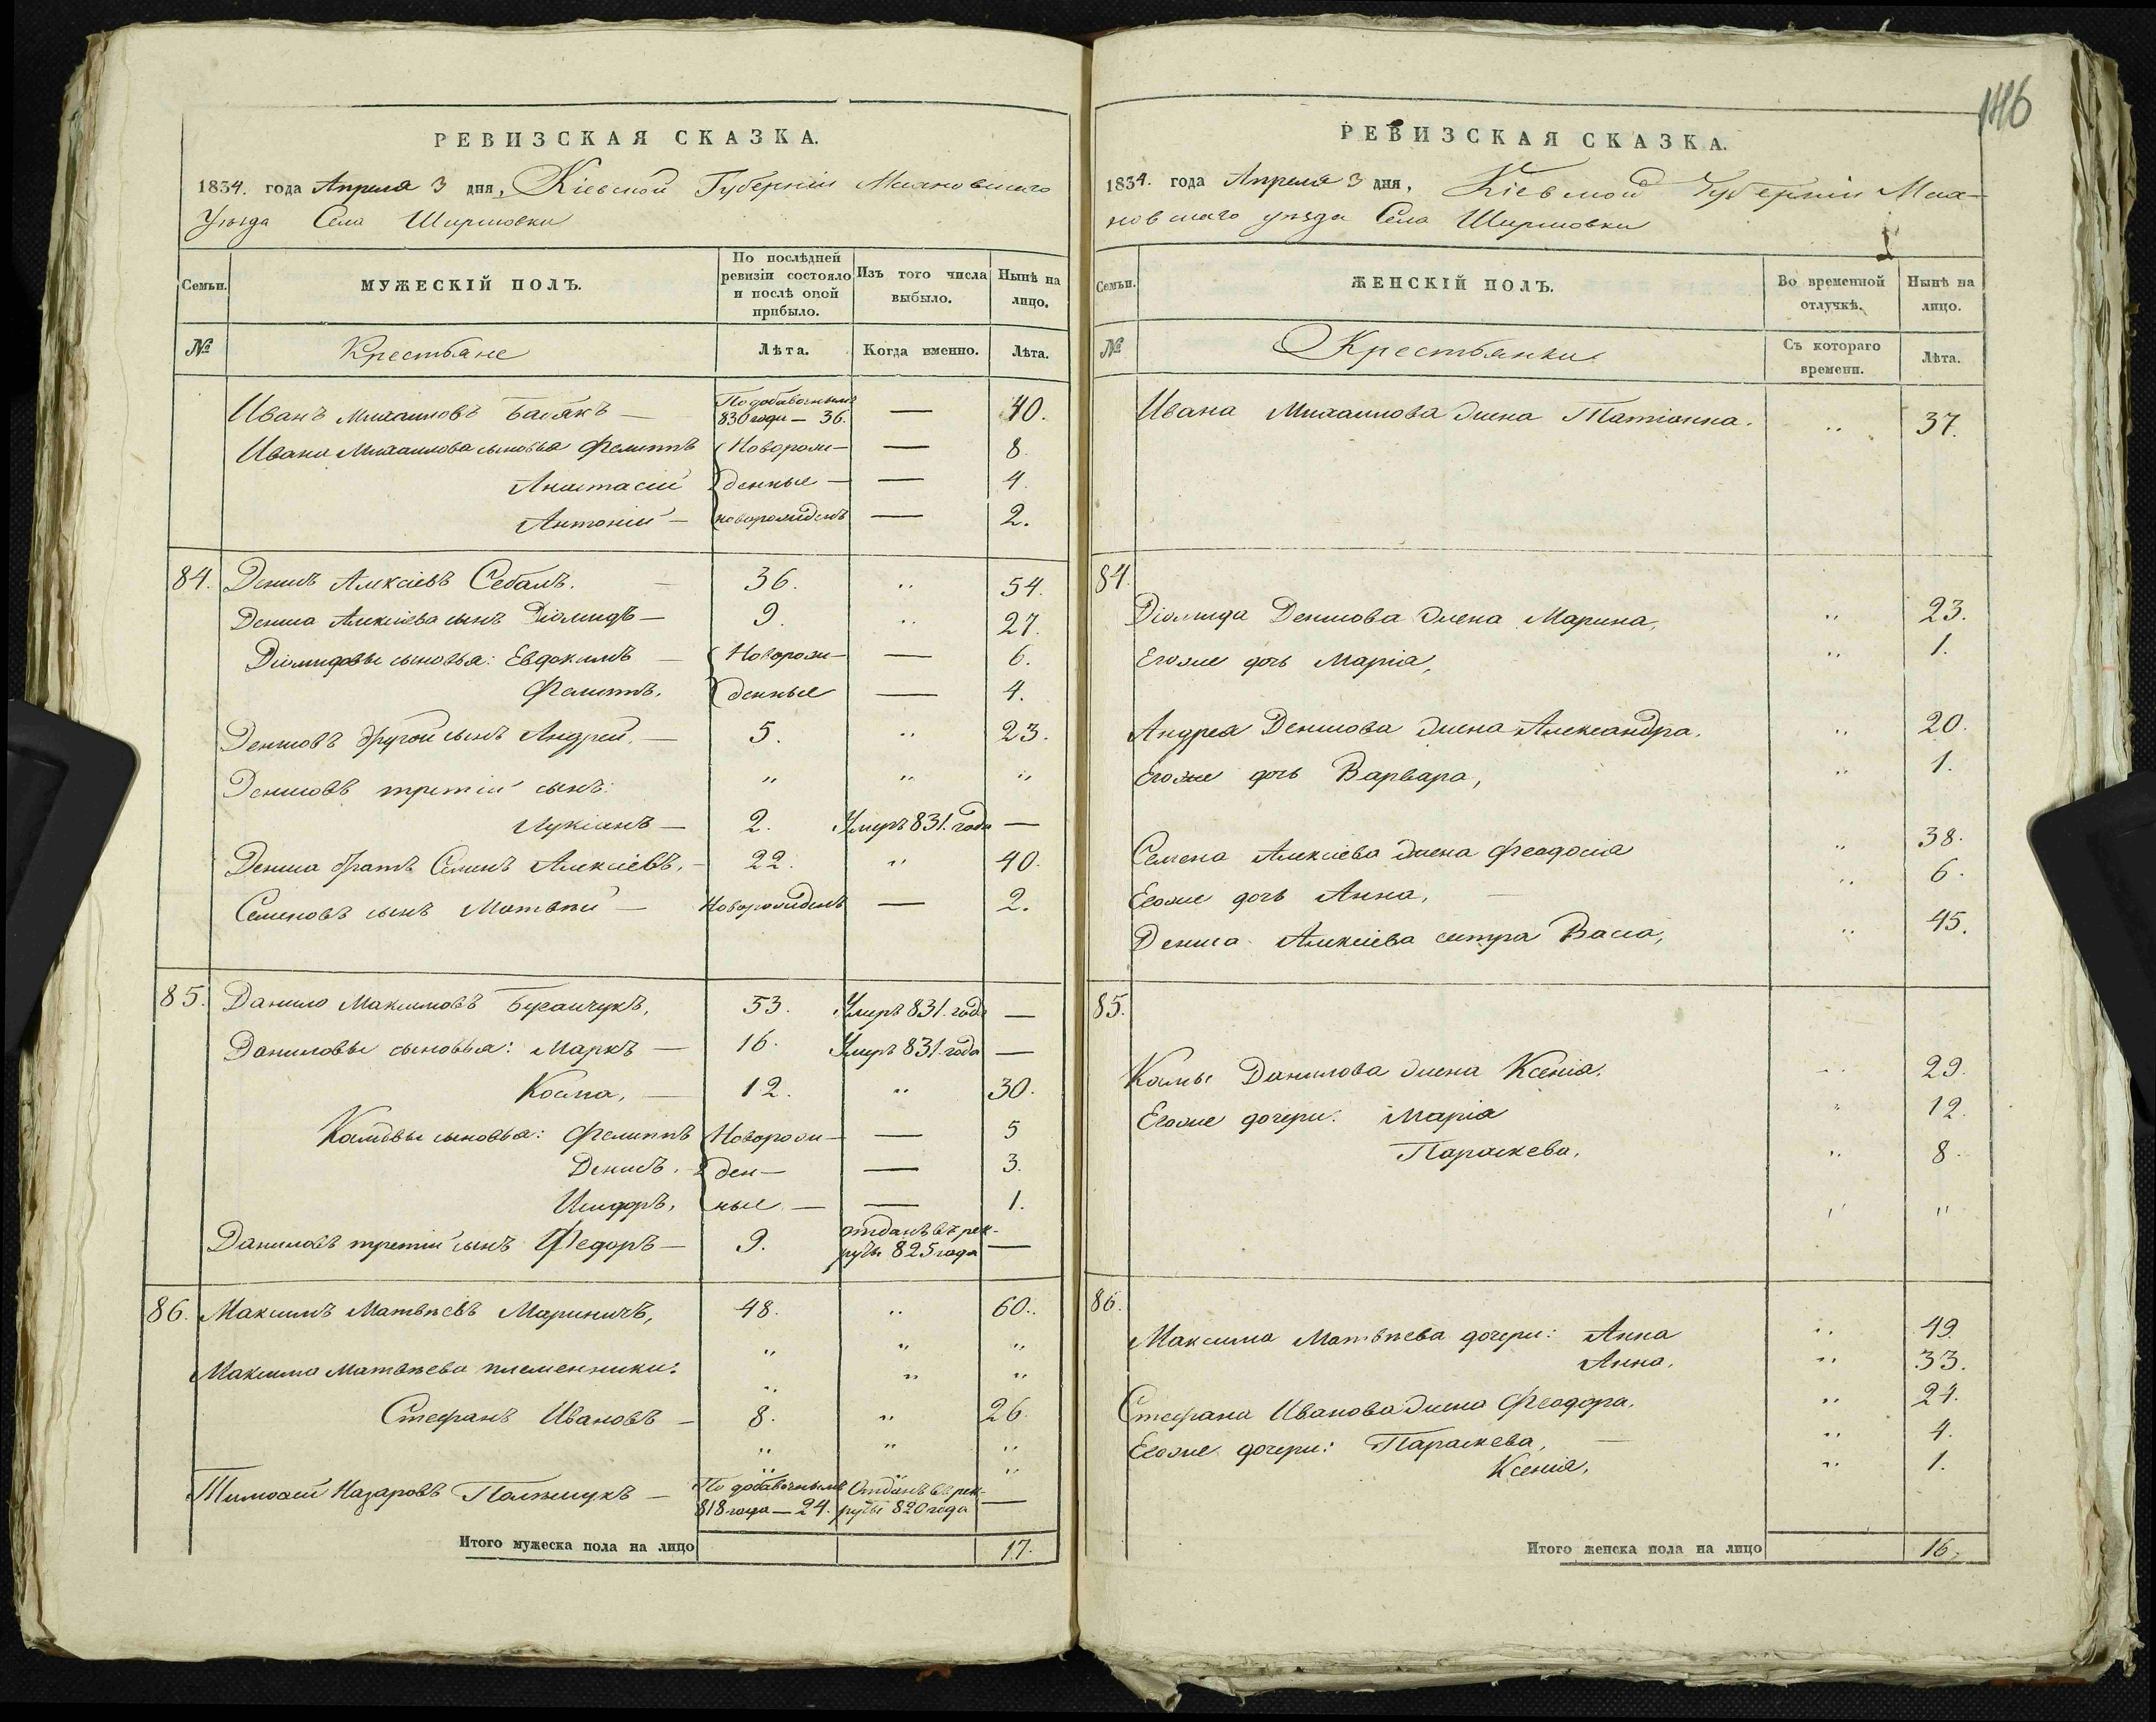 146
РЕВИЗСКАЯ СКАЗКА.
1834. года Апреля 3 дня, Кіевской Губерніи Махновскаго
Уѣзда Села Ширмовки
Семьи. МУЖЕСКІЙ ПОЛЪ. По послѣдней ревизіи состояло и послѣ оной прибыло. Изъ того числа выбыло. Нынѣ на лицо.
№ Крестьяне Лѣта. Когда именно. Лѣта.
Иванъ Михаиловъ По добавочнымъ 830 года — 36. — 40.
Ивана Михаилова сыновья Филиппъ Новорож- — 8.
Анастасій денные — — 4.
Антоній — новорожденъ — 2.
84. Денисъ Алексіевъ Себалъ. — 36. „ 54.
Дениса Алексіева сынъ Діомидъ — 9. „ 27.
Діомидовы сыновья: Евдокимъ — Новорож- — 6.
Филиппъ. денные — 4.
Денисовъ другой сынъ Андрей. — 5. „ 23.
Денисовъ третій сынъ: „ „ „
Лукіанъ — 2. Умеръ 831. года —
Дениса братъ Семенъ Алексіевъ. — 22. „ 40.
Семеновъ сынъ Матвѣй — Новорожденъ — 2.
85. Данило Максимовъ 53. Умеръ 831. года —
Даниловы сыновья: Маркъ — 16. Умеръ 831. года —
Косма, — 12. „ 30.
Космовы сыновья: Филиппъ Новорож- — 5
Денисъ. — ден- — 3.
Исидоръ, ные — — 1.
Даниловъ третій сынъ Федоръ — 9. отданъ въ рек-
руты 825 года —
86. Максимъ Матвѣевъ Мариничъ, 48. „ 60.
„ „ „
Максима Матвѣева племенники: „ „ „
Стефанъ Ивановъ — 8. „ 26.
„ „ „
Тимофей Назаровъ Полищукъ — По добавочнымъ 818 года — 24. Отданъ въ рек-
руты 820 года —
Итого мужеска пола на лицо 17.
РЕВИЗСКАЯ СКАЗКА.
1834. года Апреля 3 дня, Кіевской Губерніи Мах-
новскаго уѣзда Села Ширмовки
Семьи. ЖЕНСКІЙ ПОЛЪ. Во временной отлучкѣ. Нынѣ на лицо.
№ Крестьянки Съ котораго времени. Лѣта.
Ивана Михаилова жена Татіанна. „ 37.
84.
Діомида Денисова жена Марина, „ 23.
Егоже дочь Марія, „ 1.
Андрея Денисова жена Александра. „ 20.
Егоже дочь Варвара, „ 1.
Семена Алексіева жена Феодосія „ 38.
Егоже дочь Анна, — „ 6.
Дениса Алексіева сестра Васса, „ 45.
85.
Космы Данилова жена Ксенія. „ 29.
Егоже дочери: Марія „ 12.
Параскева. „ 8.
„ „
86.
Максима Матвѣева дочери: Анна „ 49.
Анна. „ 33.
Стефана Иванова жена Феодора. „ 24.
Егоже дочери: Параскева, — „ 4.
Ксенія, „ 1.
Итого женска пола на лицо 16.